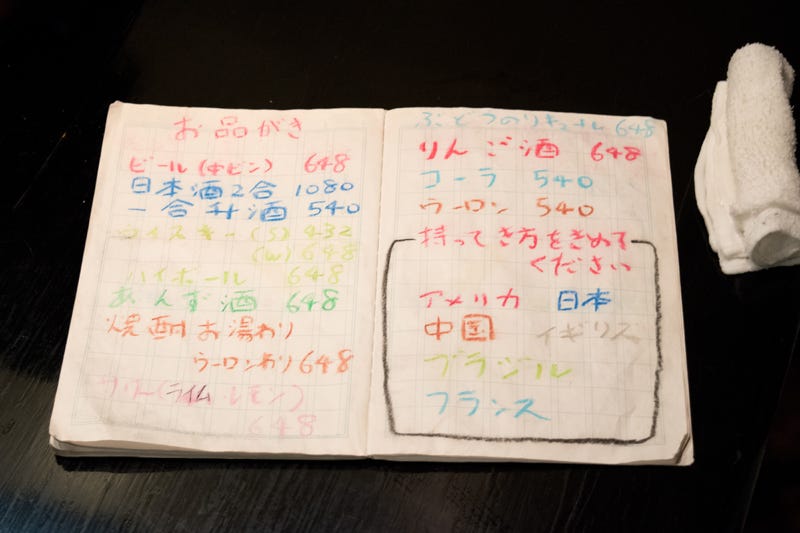 お品がき
ビール(中ビン) 648
日本酒2合 1080
一合升酒 540
ウイスキー(S) 432
(W) 648
ハイボール 648
あんず酒 648
焼酎お湯わり
ウーロンわり 648
サワー(ライム・レモン)
648
ぶどうのリキュール 648
りんご酒 648
コーラ 540
ウーロン 540
持ってき方をきめて
ください
アメリカ 日本
中国 イギリス
ブラジル
フランス